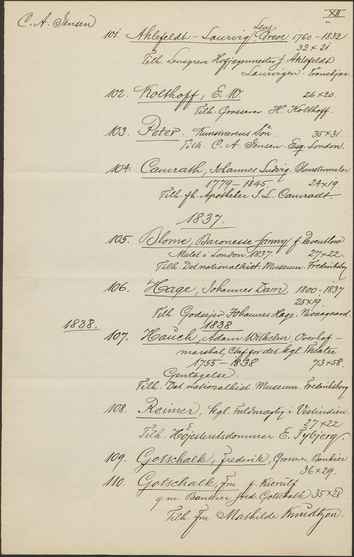 C. A. Jensen
XII
101. Ahlefeldt-Laurvig, Lens Greve 1760-1832
32 x 21
Tilh. Lensgreve Hofjægermester J. Ahlefeldt
Laurvigen. Tranekjær.
102. Kolthoff, E. W. 26 x 20.
Tilh. Grosserer H. Kolthoff.
103. Peter. Kunstnerens Søn 35 x 31.
Tilh. C. A. Jensen Esq. London.
104. Camradt, Johannes Ludvig Blomstermaler
1779-1845. 24 x 19.
Tilh. fh. Apotheker J. L. Camradt
1837.
105. Blome, Baronesse Fanny f. Reventlow
Malet i London 1837 27 x 22.
Tilh. Det nationalhist. Museum. Frederiksborg
106. Hage, Johannes Dam 1800-1837
25 x 19.
Tilh. Godsejer Johannes Hage. Nivaagaard.
1838.
1838
107. Hauch, Adam Wilhelm, Overhof-
marskal, Chef for det kgl. Theater
1755-1838 73 x 58.
Gentagelse
Tilh. Det nationalhist. Museum. Frederiksborg
108. Reimer, kgl. Fuldmægtig i Vestindien
27 x 22
Tilh. Højesteretsdommer E. Tybjerg.
109. Gotschalk, Frederik, Grosserer Bankier
36 x 29.
110. Gotschalk, Fru f. Kierulf
g. m. Bankier Fred. Gotschalk 35 x 28
Tilh. Fru Mathilde Knudtzon.